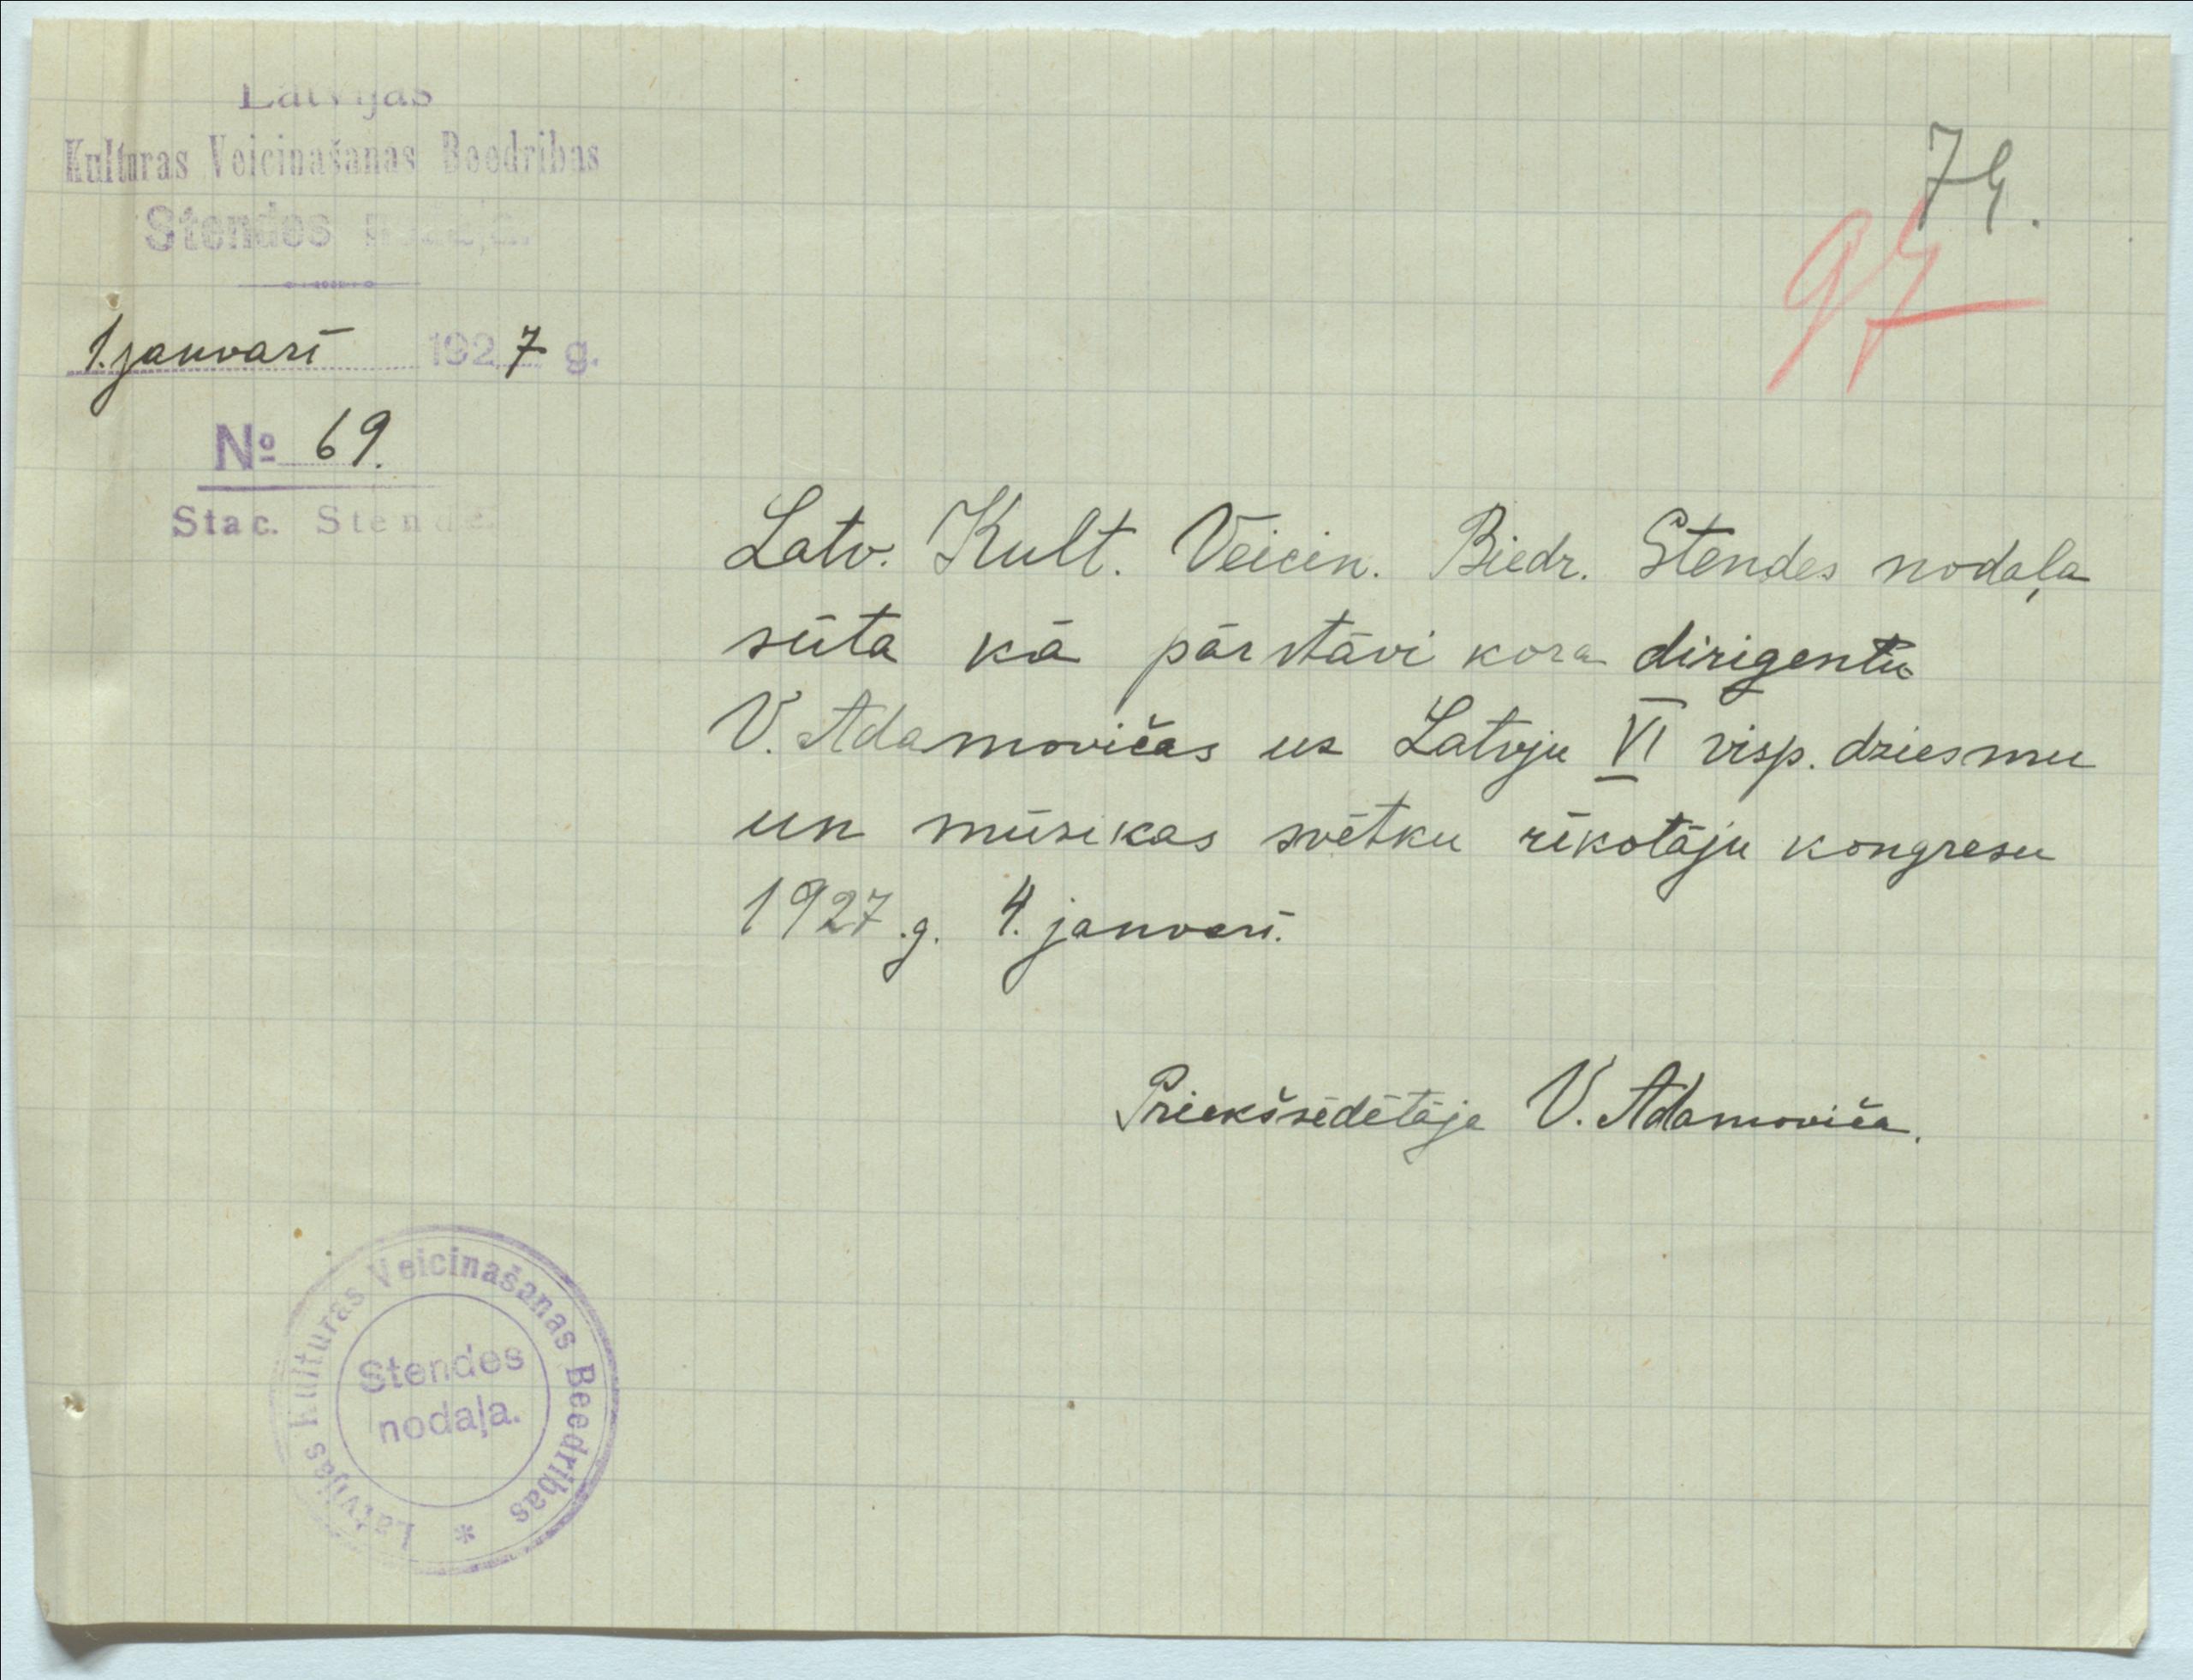 Latvijas
Kulturas Veicinašanas Beedribas
Stendes nodaļa.
1. janvarī 1927 g.
№ 69.
Stac. Stende.
74.
97
Latv. Kult. Veicin. Biedr. Stendes nodaļa
sūta kā pārstāvi kora dirigentu
V. Adamovičas uz Latvju VI visp. dziesmu
un mūzikas svētku rīkotāju kongresu
1927.g. 4. janvarī.
Priekšsēdētāja V. Adamoviča.
Latvijas Kulturas Veicinašanas Beedribas *
Stendes
nodaļa.